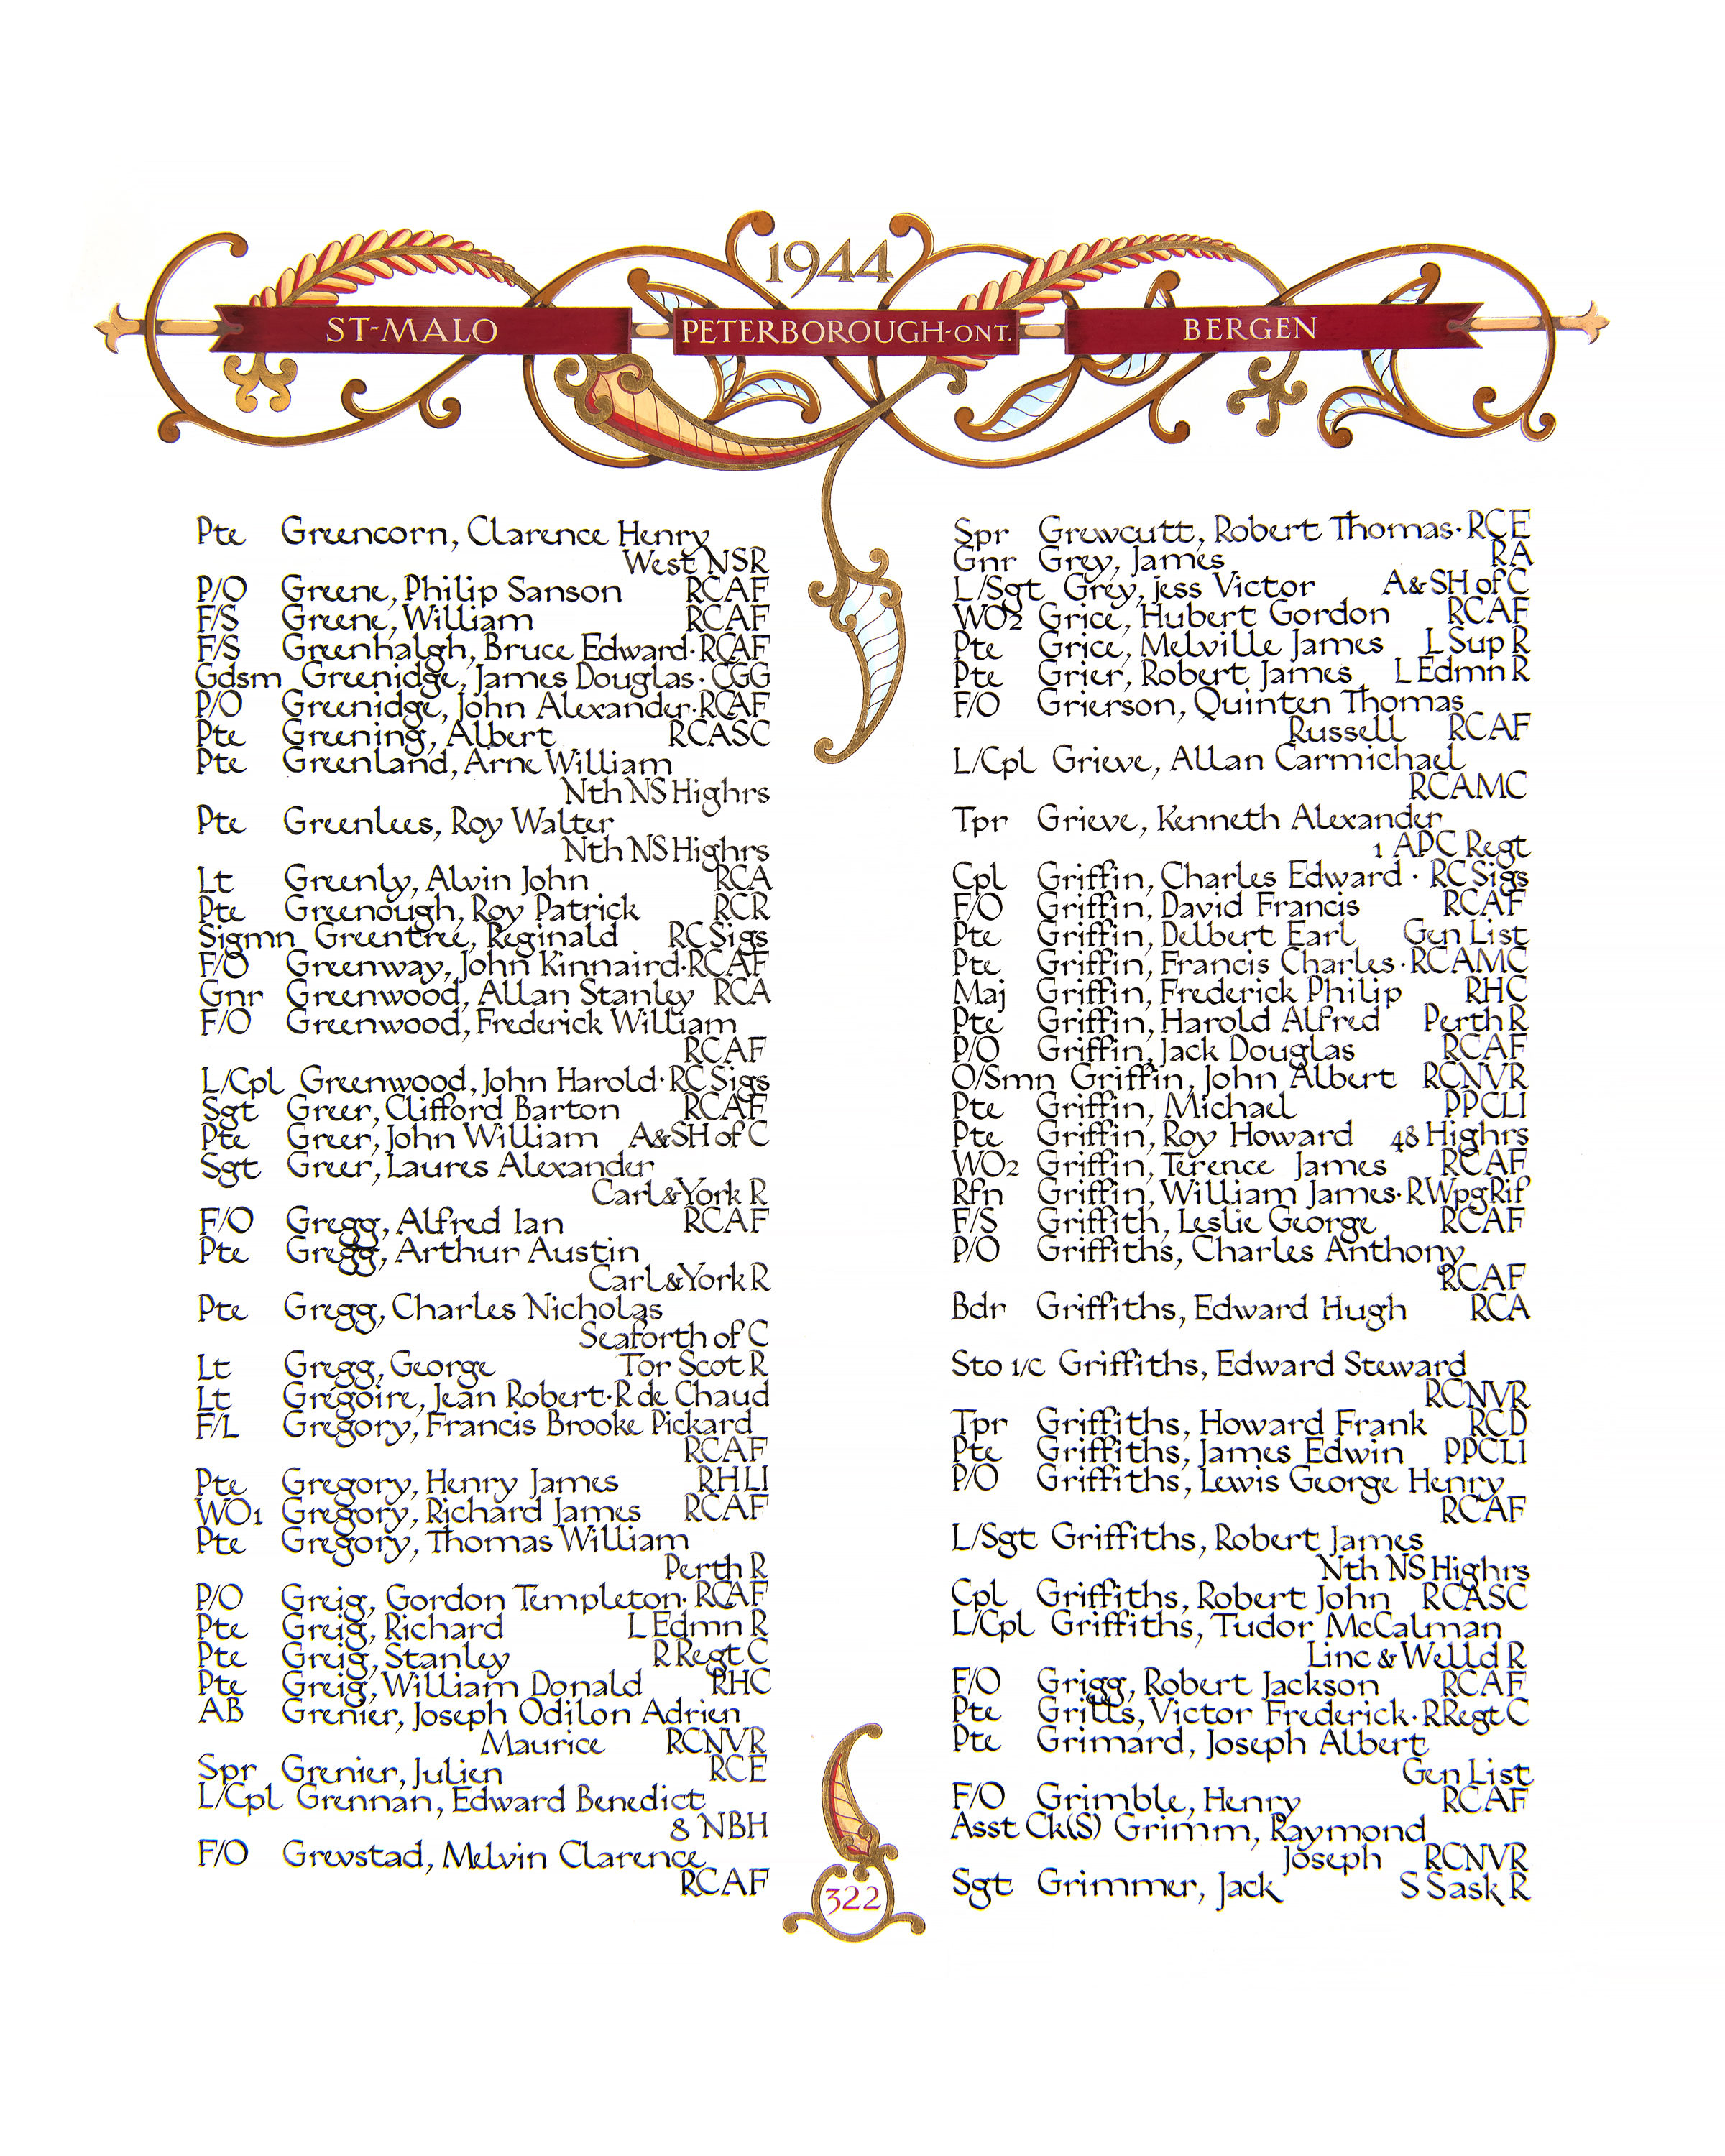 1944
ST-MALO PETERBOROUGH-ONT. BERGEN
Pte Greencorn, Clarence Henry
West NSR
P/O Greene, Philip Sanson RCAF
F/S Greene, William RCAF
F/S Greenhalgh, Bruce Edward·RCAF
Gdsm Greenidge, James Douglas·CGG
P/O Greenidge, John Alexander·RCAF
Pte Greening, Albert RCASC
Pte Greenland, Arne William
Nth NS Highrs
Pte Greenlees, Roy Walter
Nth NS Highrs
Lt Greenly, Alvin John RCA
Pte Greenough, Roy Patrick RCR
Sigmn Greentree, Reginald RC Sigs
F/O Greenway, John Kinnaird·RCAF
Gnr Greenwood, Allan Stanley RCA
F/O Greenwood, Frederick William
RCAF
L/Cpl Greenwood, John Harold·RC Sigs
Sgt Greer, Clifford Barton RCAF
Pte Greer, John William A&SH of C
Sgt Greer, Laures Alexander
Carl&York R
F/O Gregg, Alfred Ian RCAF
Pte Gregg, Arthur Austin
Carl&York R
Pte Gregg, Charles Nicholas
Seaforth of C
Lt Gregg, George Tor Scot R
Lt Grégoire, Jean Robert·R de Chaud
F/L Gregory, Francis Brooke Pickard
RCAF
Pte Gregory, Henry James RHLI
WO1 Gregory, Richard James RCAF
Pte Gregory, Thomas William
Perth R
P/O Greig, Gordon Templeton·RCAF
Pte Greig, Richard L Edmn R
Pte Greig, Stanley R Regt C
Pte Greig, William Donald RHC
AB Grenier, Joseph Odilon Adrien
Maurice RCNVR
Spr Grenier, Julien RCE
L/Cpl Grennan, Edward Benedict
8 NBH
F/O Grevstad, Melvin Clarence
RCAF
Spr Grewcutt, Robert Thomas·RCE
Gnr Grey, James RA
L/Sgt Grey, Jess Victor A&SH of C
WO2 Grice, Hubert Gordon RCAF
Pte Grice, Melville James L Sup R
Pte Grier, Robert James L Edmn R
F/O Grierson, Quinten Thomas
Russell RCAF
L/Cpl Grieve, Allan Carmichael
RCAMC
Tpr Grieve, Kenneth Alexander
1 APC Regt
Cpl Griffin, Charles Edward·RC Sigs
F/O Griffin, David Francis RCAF
Pte Griffin, Delbert Earl Gen List
Pte Griffin, Francis Charles·RCAMC
Maj Griffin, Frederick Philip RHC
Pte Griffin, Harold Alfred Perth R
P/O Griffin, Jack Douglas RCAF
O/Smn Griffin, John Albert RCNVR
Pte Griffin, Michael PPCLI
Pte Griffin, Roy Howard 48 Highrs
WO2 Griffin, Terence James RCAF
Rfn Griffin, William James·R Wpg Rif
F/S Griffith, Leslie George RCAF
P/O Griffiths, Charles Anthony
RCAF
Bdr Griffiths, Edward Hugh RCA
Sto 1/c Griffiths, Edward Steward
RCNVR
Tpr Griffiths, Howard Frank RCD
Pte Griffiths, James Edwin PPCLI
P/O Griffiths, Lewis George Henry
RCAF
L/Sgt Griffiths, Robert James
Nth NS Highrs
Cpl Griffiths, Robert John RCASC
L/Cpl Griffiths, Tudor McCalman
Linc & Welld R
F/O Grigg, Robert Jackson RCAF
Pte Grills, Victor Frederick·R Regt C
Pte Grimard, Joseph Albert
Gen List
F/O Grimble, Henry RCAF
Asst Ck(S) Grimm, Raymond
Joseph RCNVR
Sgt Grimmer, Jack S Sask R
322